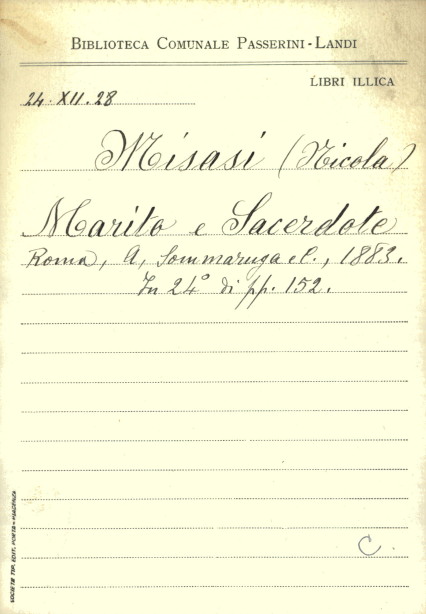 BIBLIOTECA COMUNALE PASSERINI-LANDI
LIBRI ILLICA
24.XII.28
Misasi (Nicola)
Marito e Sacerdote
Roma, A, Sommaruga e C., 1883.
In 24° di pp. 152.
C.
SOCIETÀ TIP. EDIT. PORTA - PIACENZA